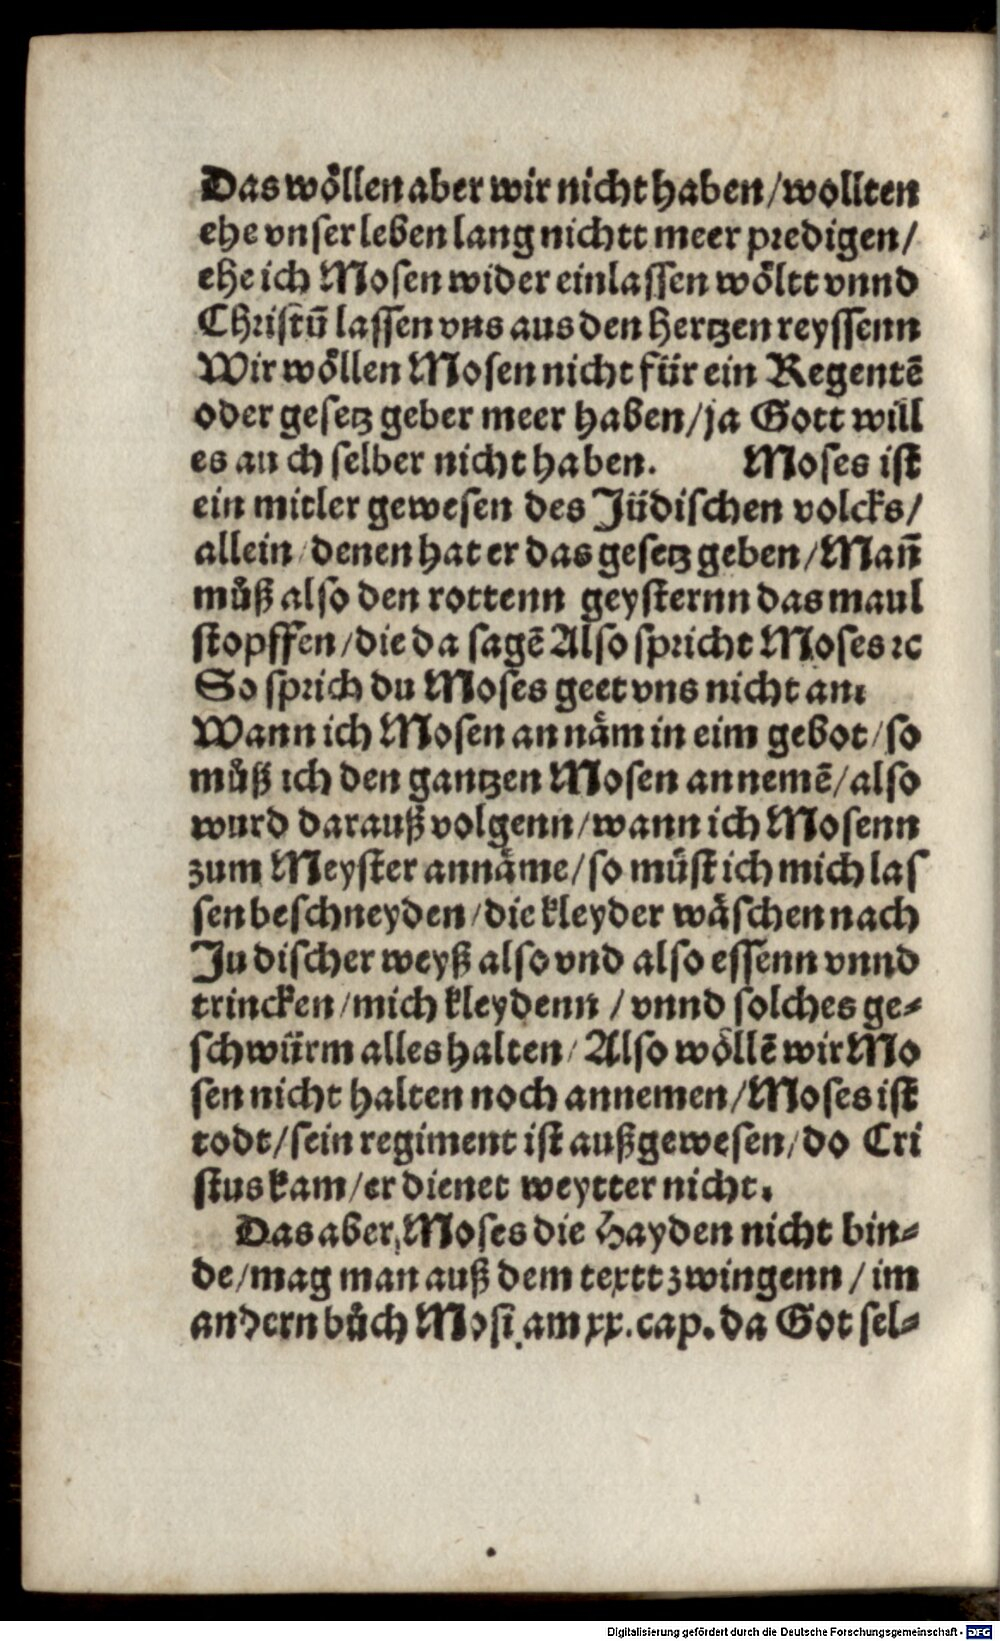 Das wöllen aber wir nicht haben/wollten
ehe vnser leben lang nichtt meer predigen/
ehe ich Mosen wider einlassen wöltt vnnd
Christū lassen vns aus den hertzen reyssenn
Wir wöllen Mosen nicht für ein Regentē
oder gesetz geber meer haben/ja Gott will
es au ch selber nicht haben. Moses ist
ein mitler gewesen des Jüdischen volcks/
allein/denen hat er das gesetz geben/Man̄
můß also den rottenn geysternn das maul
stopffen/die da sagē Also spricht Moses ꝛc
So sprich du Moses geet vns nicht an:
Wann ich Mosen an näm in eim gebot/so
můß ich den gantzen Mosen annemē/also
wurd darauß volgenn/wann ich Mosenn
zum Meyster annäme/so müst ich mich las
sen beschneyden/die kleyder wäschen nach
Judischer weyß also vnd also essenn vnnd
trincken/mich kleydenn/vnnd solches ge⸗
schwürm alles halten/Also wöllē wir Mo
sen nicht halten noch annemen/Moses ist
todt/sein regiment ist außgewesen/do Cri
stus kam/er dienet weytter nicht.
Das aber, Moses die Hayden nicht bin⸗
de/mag man auß dem textt zwingenn/im
andern bůch Mosi am xx. cap. da Got sel⸗
Digitalisierung gefördert durch die Deutsche Forschungsgemeinschaft - DFG